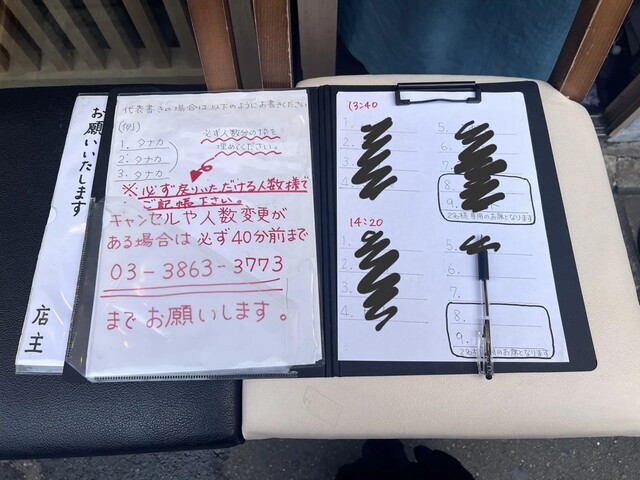 お願いいたします
店主
代表書きの場合は以下のようにお書きください
(例)
1. タナカ
2. タナカ
3. タナカ
必ず人数分の枠を
埋めてください。
※必ず戻りいただける人数様で
ご記帳下さい。
キャンセルや人数変更が
ある場合は必ず40分前まで
03-3863-3773
までお願いします。
13:40
1.
2.
3.
4.
5.
8.
9.
2名様専用のお席となります
14:20
1.
2.
3.
4.
5.
6.
7.
8.
9.
お席となります